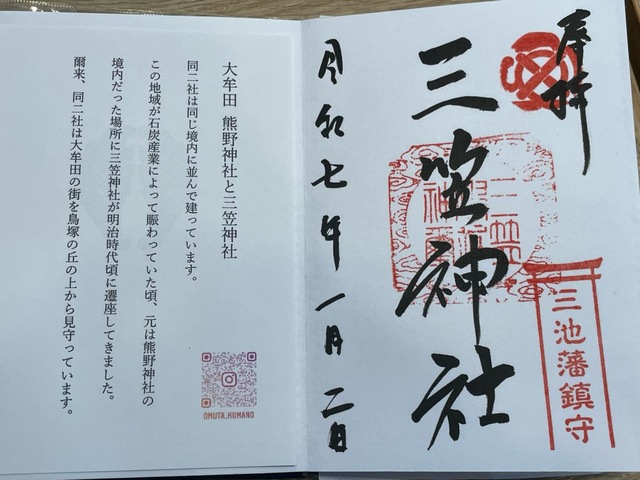 奉拝
三笠神社
三池藩鎮守
令和七年一月二日
大牟田 熊野神社と三笠神社
同二社は同じ境内に並んで建っています。
この地域が石炭産業によって賑わっていた頃、元は熊野神社の
境内だった場所に三笠神社が明治時代頃に遷座してきました。
爾来、同二社は大牟田の街を鳥塚の丘の上から見守っています。
OMUTA_KUMANO